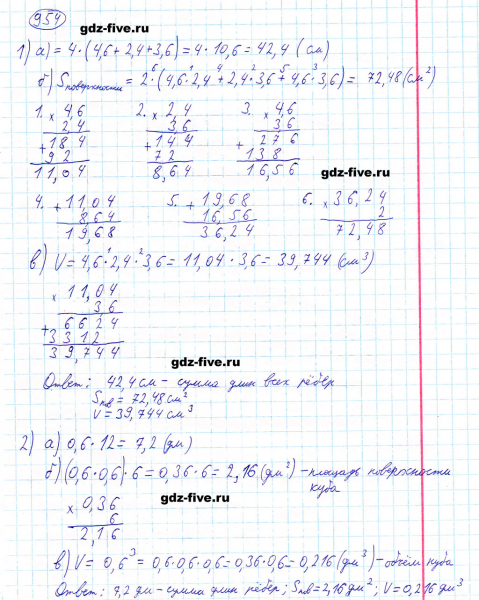 954
gdz-five.ru
1) а) = 4 · (4,6 + 2,4 + 3,6) = 4 · 10,6 = 42,4 (см)
б) Sповерхности = 2 · (4,6 · 2,4 + 2,4 · 3,6 + 4,6 · 3,6) = 72,48 (см²)
1. × 4,6 2. × 2,4 3. × 4,6
2,4 3,6 3,6
+ 184 + 144 + 276
92 72 138
11,04 8,64 16,56
gdz-five.ru
4. + 11,04 5. + 19,68 6. × 36,24
8,64 16,56 2
19,68 36,24 72,48
в) V = 4,6 · 2,4 · 3,6 = 11,04 · 3,6 = 39,744 (см³)
× 11,04
3,6
+ 6624
3312
39,744
gdz-five.ru
Ответ: 42,4 см – сумма длин всех рёбер
Sпов = 72,48 см²
V = 39,744 см³
2) а) 0,6 · 12 = 7,2 (дм)
б) (0,6 · 0,6) · 6 = 0,36 · 6 = 2,16 (дм²) – площадь поверхности
куба
gdz-five.ru
× 0,36
6
2,16
в) V = 0,6³ = 0,6 · 0,6 · 0,6 = 0,36 · 0,6 = 0,216 (дм³) – объём куба
Ответ: 7,2 дм – сумма длин рёбер; Sпов = 2,16 дм²; V = 0,216 дм³